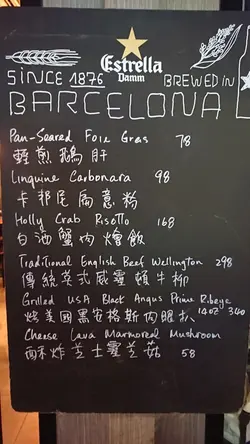 Estrella
Damm
SINCE 1876 BREWED IN
BARCELONA
Pan-Seared Foie Gras 78
香煎鵝肝
Linguine Carbonara 98
卡邦尼扁意粉
Holly Crab Risotto 168
白酒蟹肉燴飯
Traditional English Beef Wellington 298
傳統英式威靈頓牛柳
Grilled USA Black Angus Prime Ribeye
燒美國黑安格斯肉眼扒 14oz 340
Cheese Lava Marmoreal Mushroom
酥炸芝士靈芝菇 58